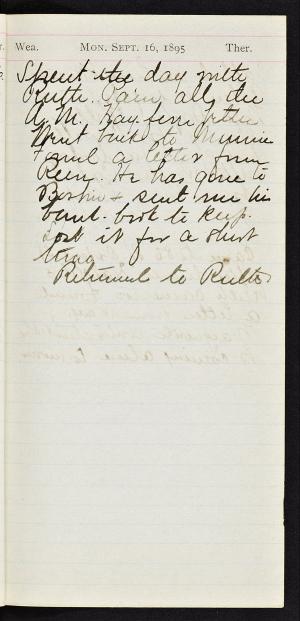 Wea. MON. SEPT. 16, 1895 Ther.
Spent the day with
Ruth. Rain all the
A.M. Hay fever
Went back to Minnie
found a letter from
He has gone to
Boston & sent me his
bank-book to keep.
Lost it for a short
time
Returned to Ruth